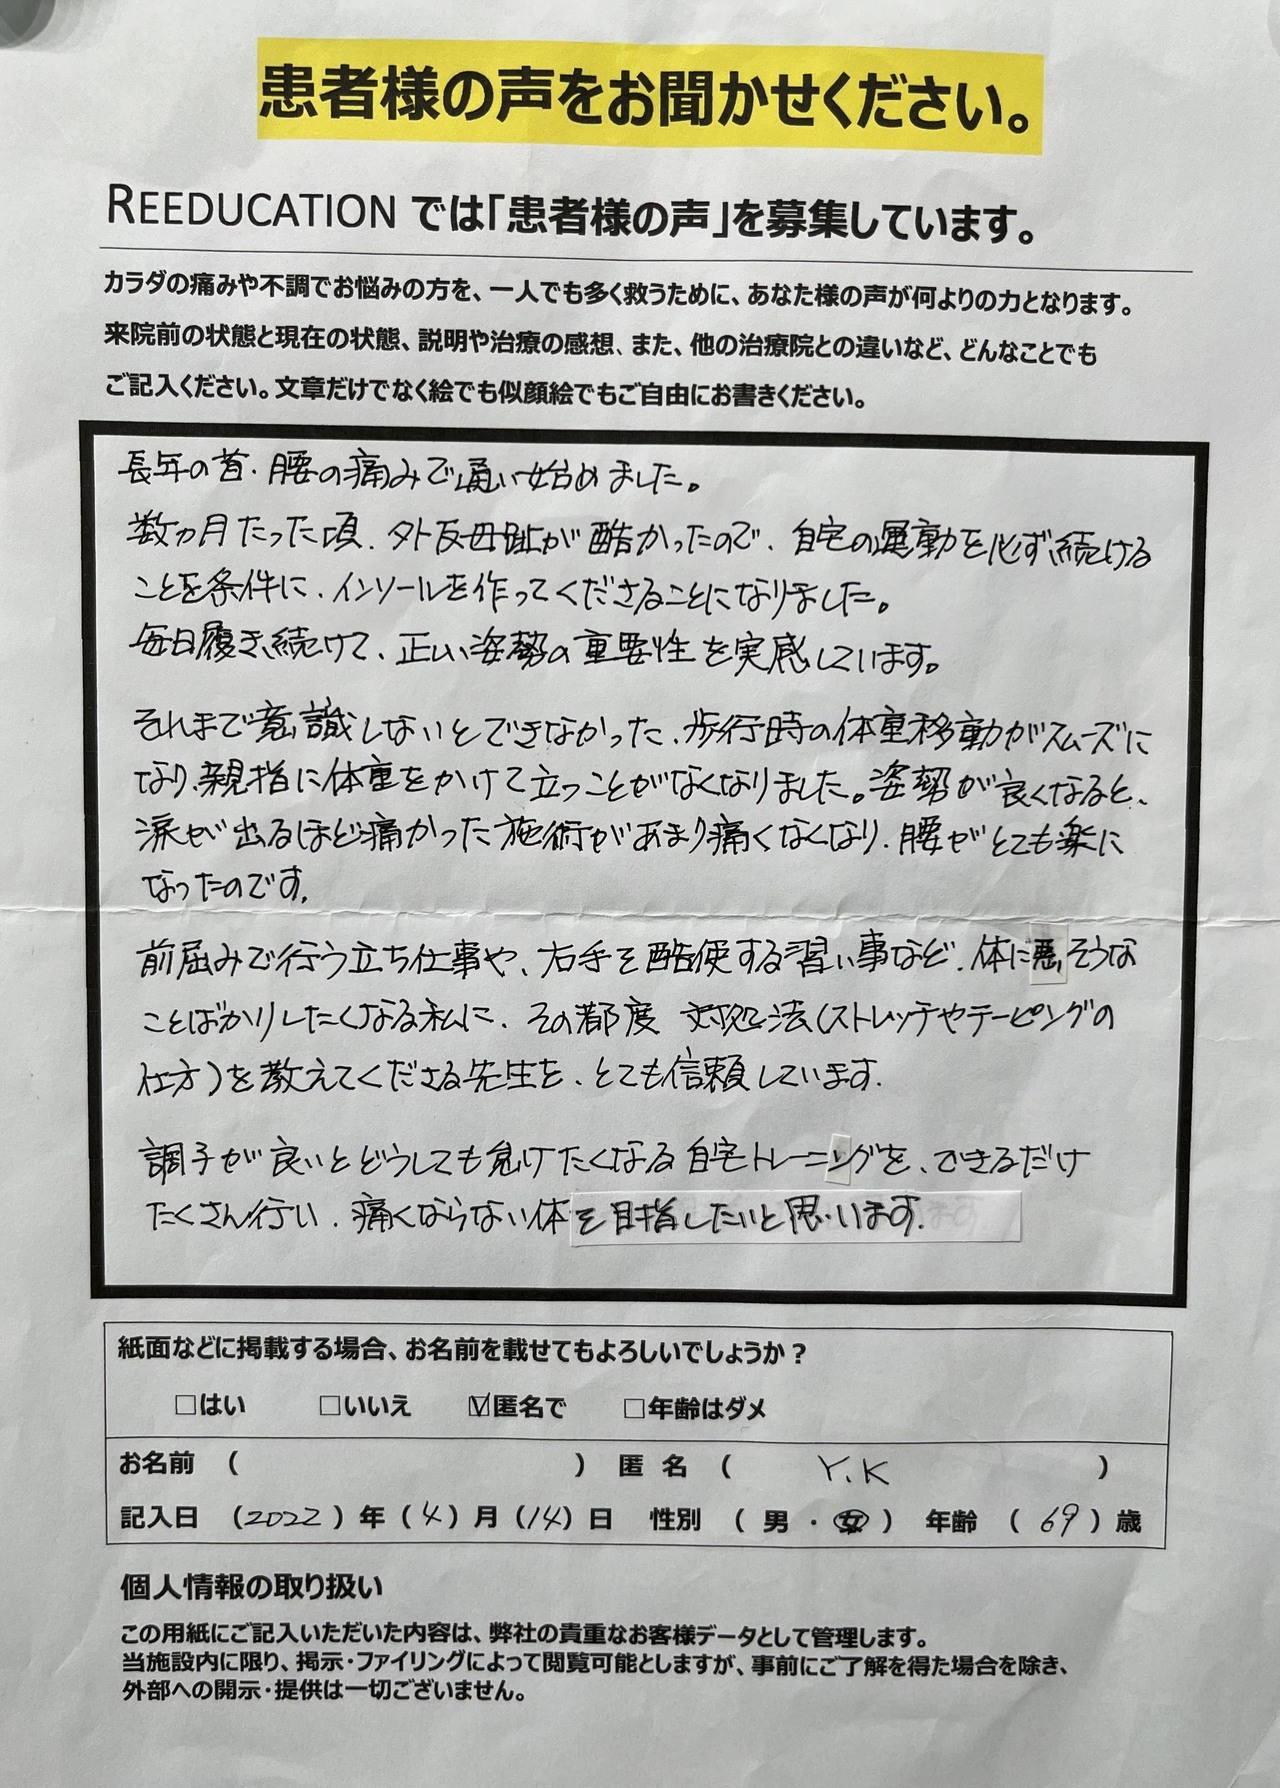 患者様の声をお聞かせください。
REEDUCATION では「患者様の声」を募集しています。
カラダの痛みや不調でお悩みの方を、一人でも多く救うために、あなた様の声が何よりの力となります。
来院前の状態と現在の状態、説明や治療の感想、また、他の治療院との違いなど、どんなことでも
ご記入ください。文章だけでなく絵でも似顔絵でもご自由にお書きください。
長年の首・腰の痛みで通い始めました。
数ヵ月たった頃、外反母趾が酷かったので、自宅の運動を必ず続ける
ことを条件に、インソールを作ってくださることになりました。
毎日履き続けて、正しい姿勢の重要性を実感しています。
それまで意識しないとできなかった、歩行時の体重移動がスムーズに
なり、親指に体重をかけて立つことがなくなりました。姿勢が良くなると、
涙が出るほど痛かった施術があまり痛くなくなり、腰がとても楽に
なったのです。
前屈みで行う立ち仕事や、右手を酷使する習い事など、体に悪そうな
ことばかりしたくなる私に、その都度 対処法(ストレッチやテーピングの
仕方)を教えてくださる先生を、とても信頼しています。
調子が良いとどうしても怠けたくなる自宅トレーニングを、できるだけ
たくさん行い、痛くならない体を目指したいと思います。
紙面などに掲載する場合、お名前を載せてもよろしいでしょうか?
□はい □いいえ ☑匿名で □年齢はダメ
お名前 ( ) 匿名 ( Y.K )
記入日 (2022)年(4)月(14)日 性別 (男・女) 年齢 (69)歳
個人情報の取り扱い
この用紙にご記入いただいた内容は、弊社の貴重なお客様データとして管理します。
当施設内に限り、掲示・ファイリングによって閲覧可能としますが、事前にご了解を得た場合を除き、
外部への開示・提供は一切ございません。